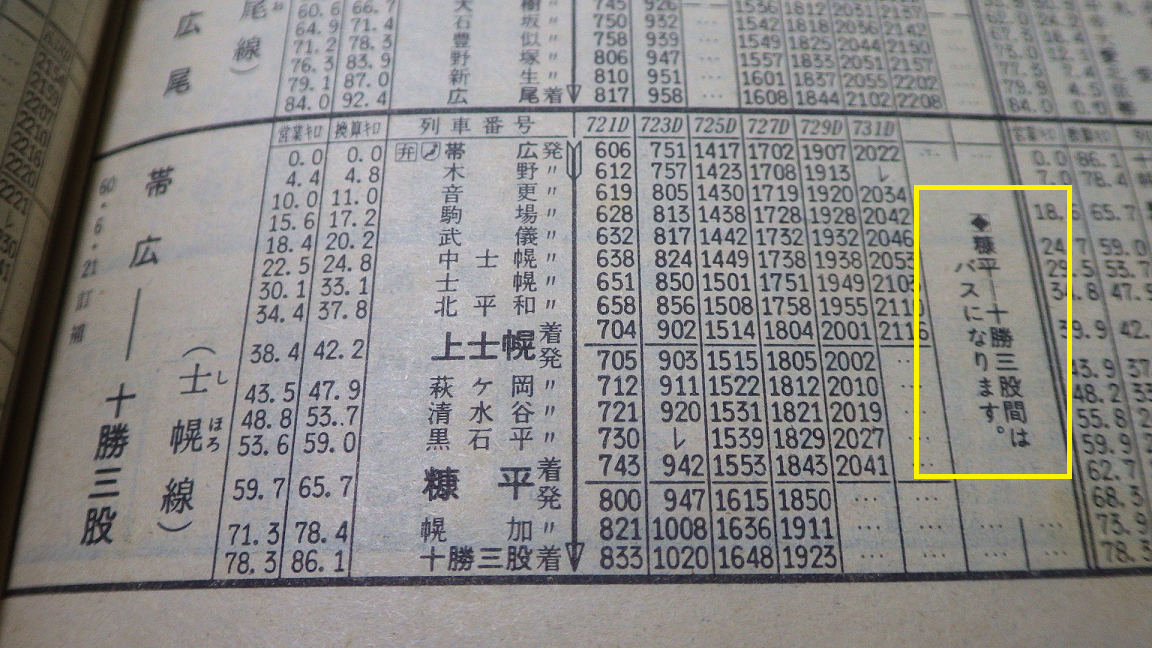 広尾線)
745 926 … 1536 1812 2031 2137
60.6 66.7 石坂〃 750 932 … 1542 1818 2036 2142
64.9 71.4 豊似〃 758 939 … 1549 1825 2044 2150
71.2 78.3 野塚〃 806 947 … 1557 1833 2051 2157
76.3 83.9 新生〃 810 951 … 1601 1837 2055 2202
79.1 87.0 広尾着 817 958 … 1608 1844 2102 2208
84.0 92.4
60・6・21訂補
帯広―十勝三股
(士幌線)
しほろ
営業キロ 換算キロ 列車番号 721D 723D 725D 727D 729D 731D
0.0 0.0 弁 帯広発 606 751 1417 1702 1907 2022 …
4.4 4.8 木野〃 612 757 1423 1708 1913 レ
10.0 11.0 音更〃 619 805 1430 1719 1920 2034
15.6 17.2 駒場〃 628 813 1438 1728 1928 2042
18.4 20.2 武儀〃 632 817 1442 1732 1932 2046
22.5 24.8 中士幌〃 638 824 1449 1738 1938 2053
30.1 33.1 士幌〃 651 850 1501 1751 1949 2103
34.4 37.8 北平和〃 658 856 1508 1758 1955 2110
38.4 42.2 上士幌着 704 902 1514 1804 2001 2116
発 705 903 1515 1805 2002 …
43.5 47.9 萩ケ岡〃 712 911 1522 1812 2010 …
48.8 53.7 清水谷〃 721 920 1531 1821 2019 …
53.6 59.0 黒石平〃 730 レ 1539 1829 2027 …
59.7 65.7 糠平着 743 942 1553 1843 2041 …
発 800 947 1615 1850 … …
71.3 78.4 幌加〃 821 1008 1636 1911 … … … …
78.3 86.1 十勝三股着 833 1020 1648 1923 … … … …
◆糠平―十勝三股間は
バスになります。
営業キロ 換算キロ
0.0 86.1
7.0 78.4
18.6 65.7
24.7 59.0
29.5 53.7
34.8 47.9
39.9 42.
43.9 37
48.2 33
55.8 2
59.9 2
62.7
68.3
73.9
78.3